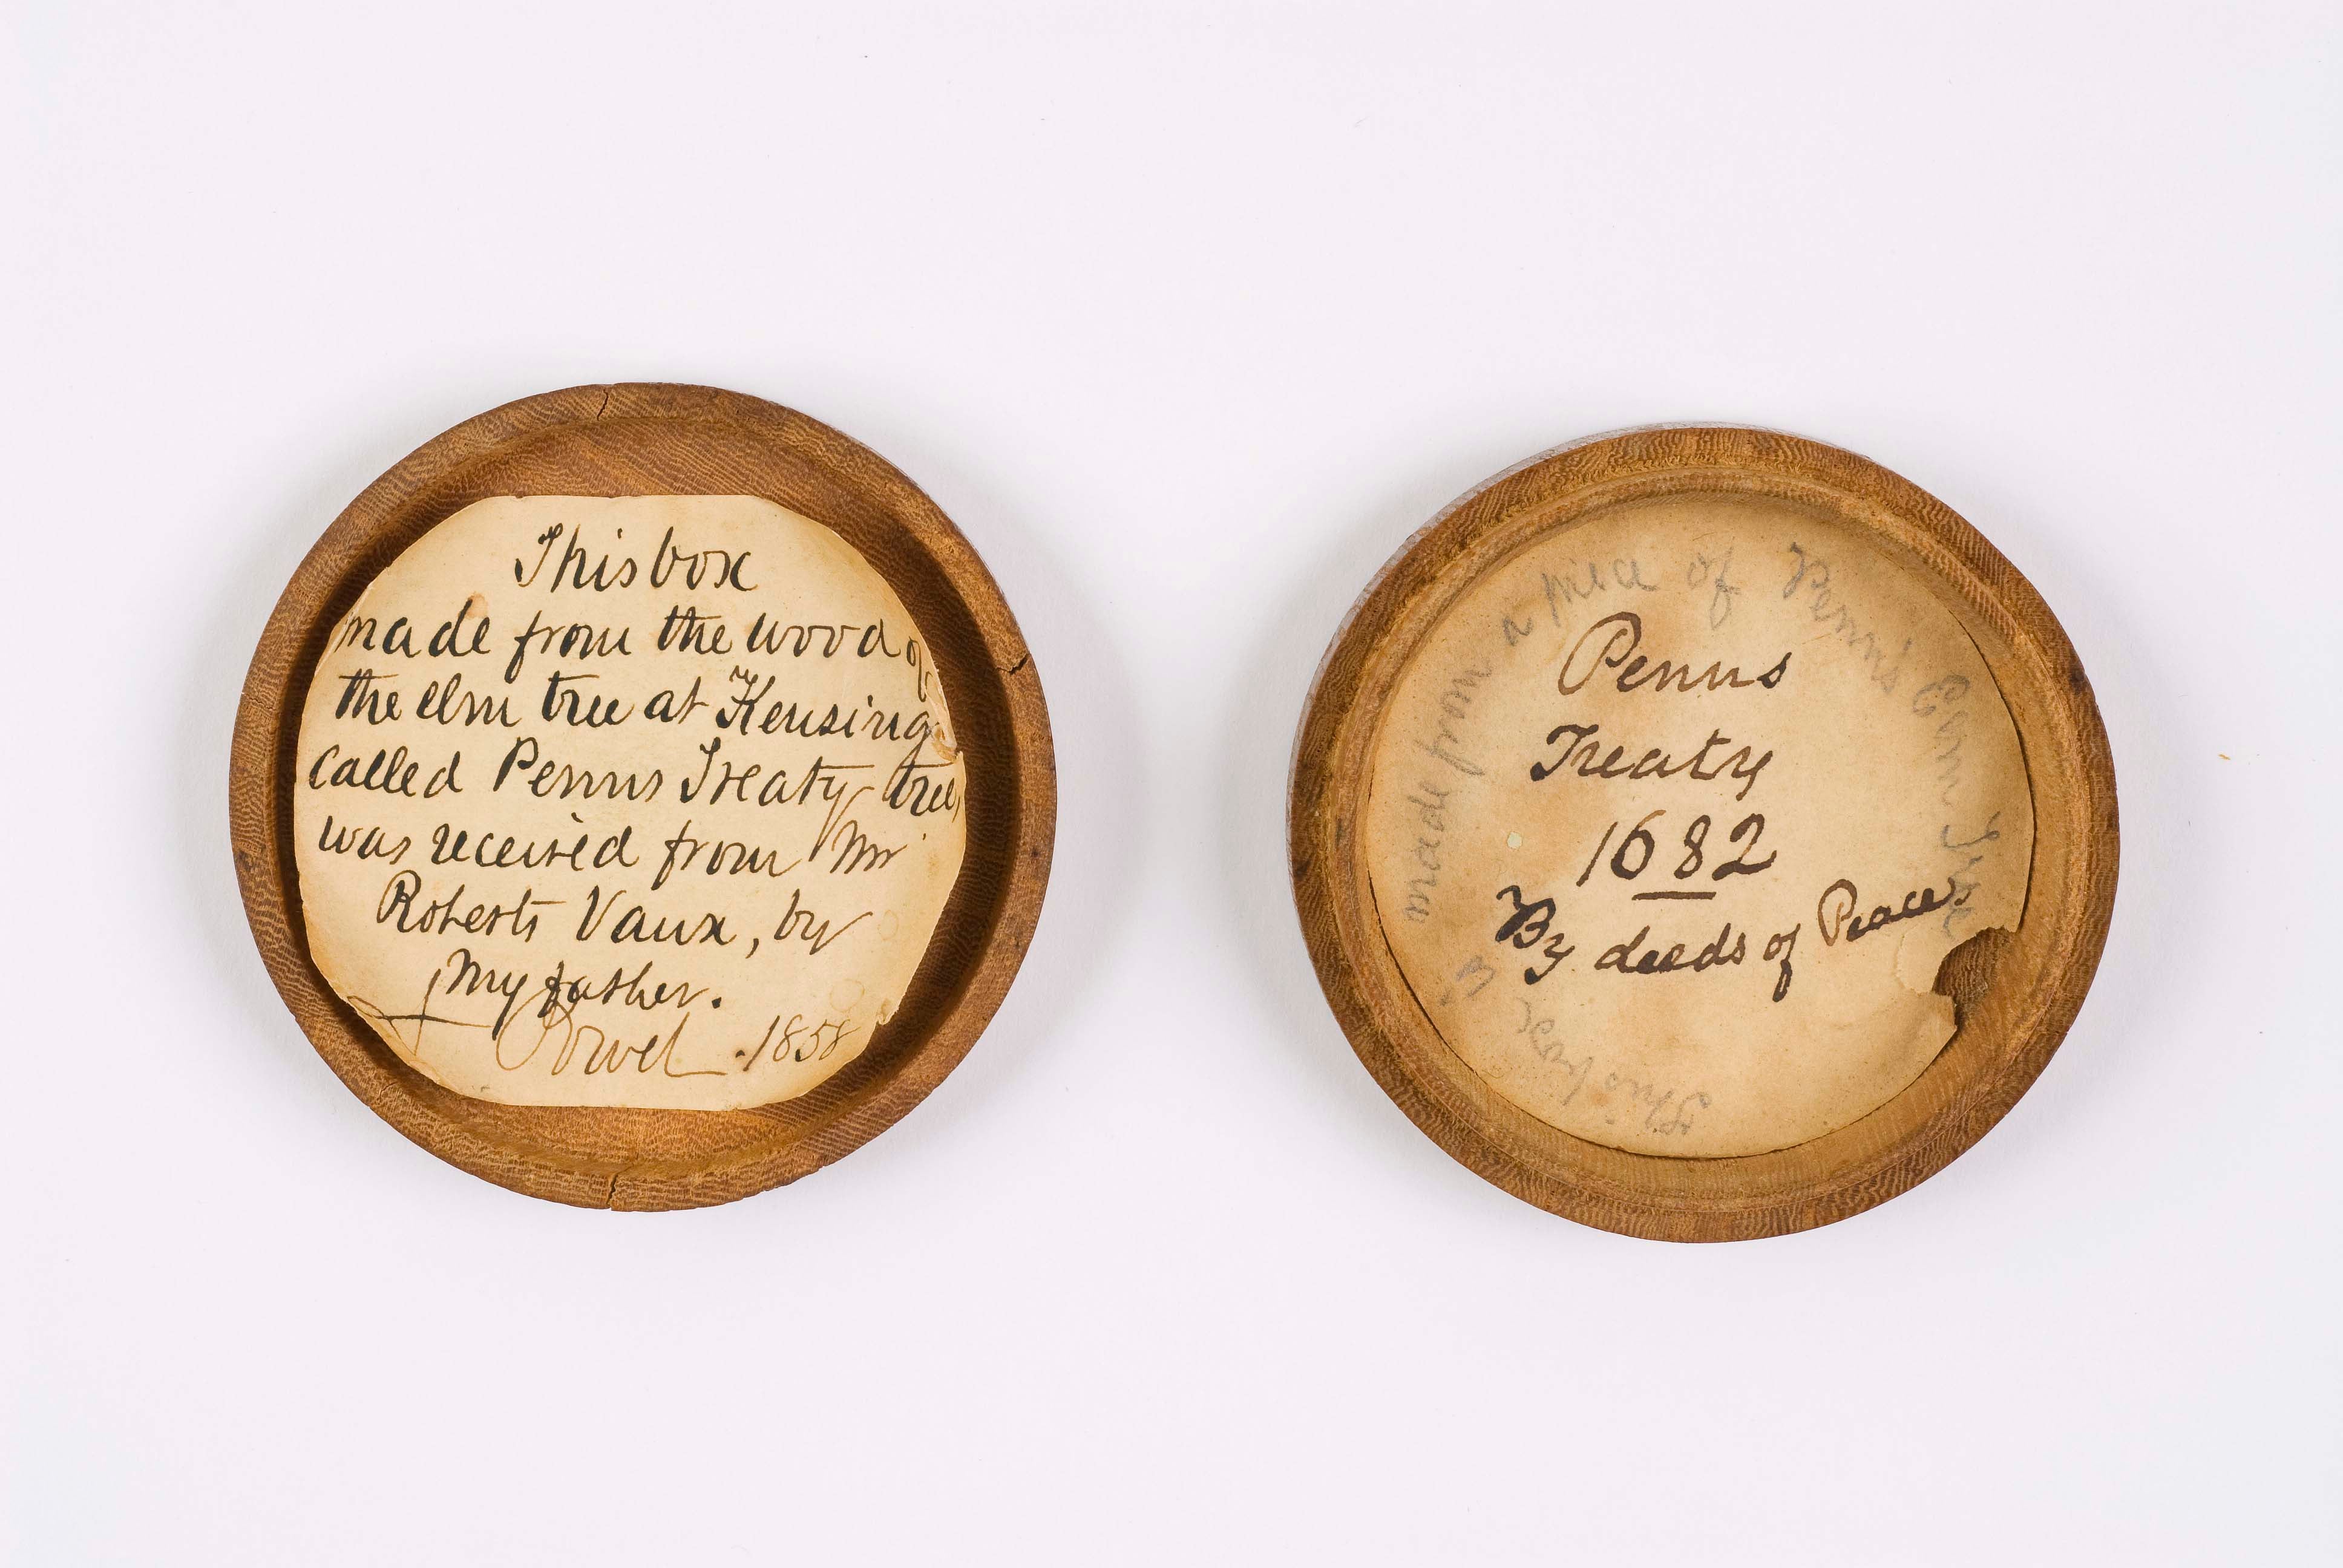 This box
made from the wood of
the elm tree at Kensing
called Penns Treaty tree,
was received from Mr
Roberts Vaux, by
my father.
Powel . 1858
Penns
Treaty
1682
By deeds of Peace
This box is made from a piece of Penn's Elm Tree